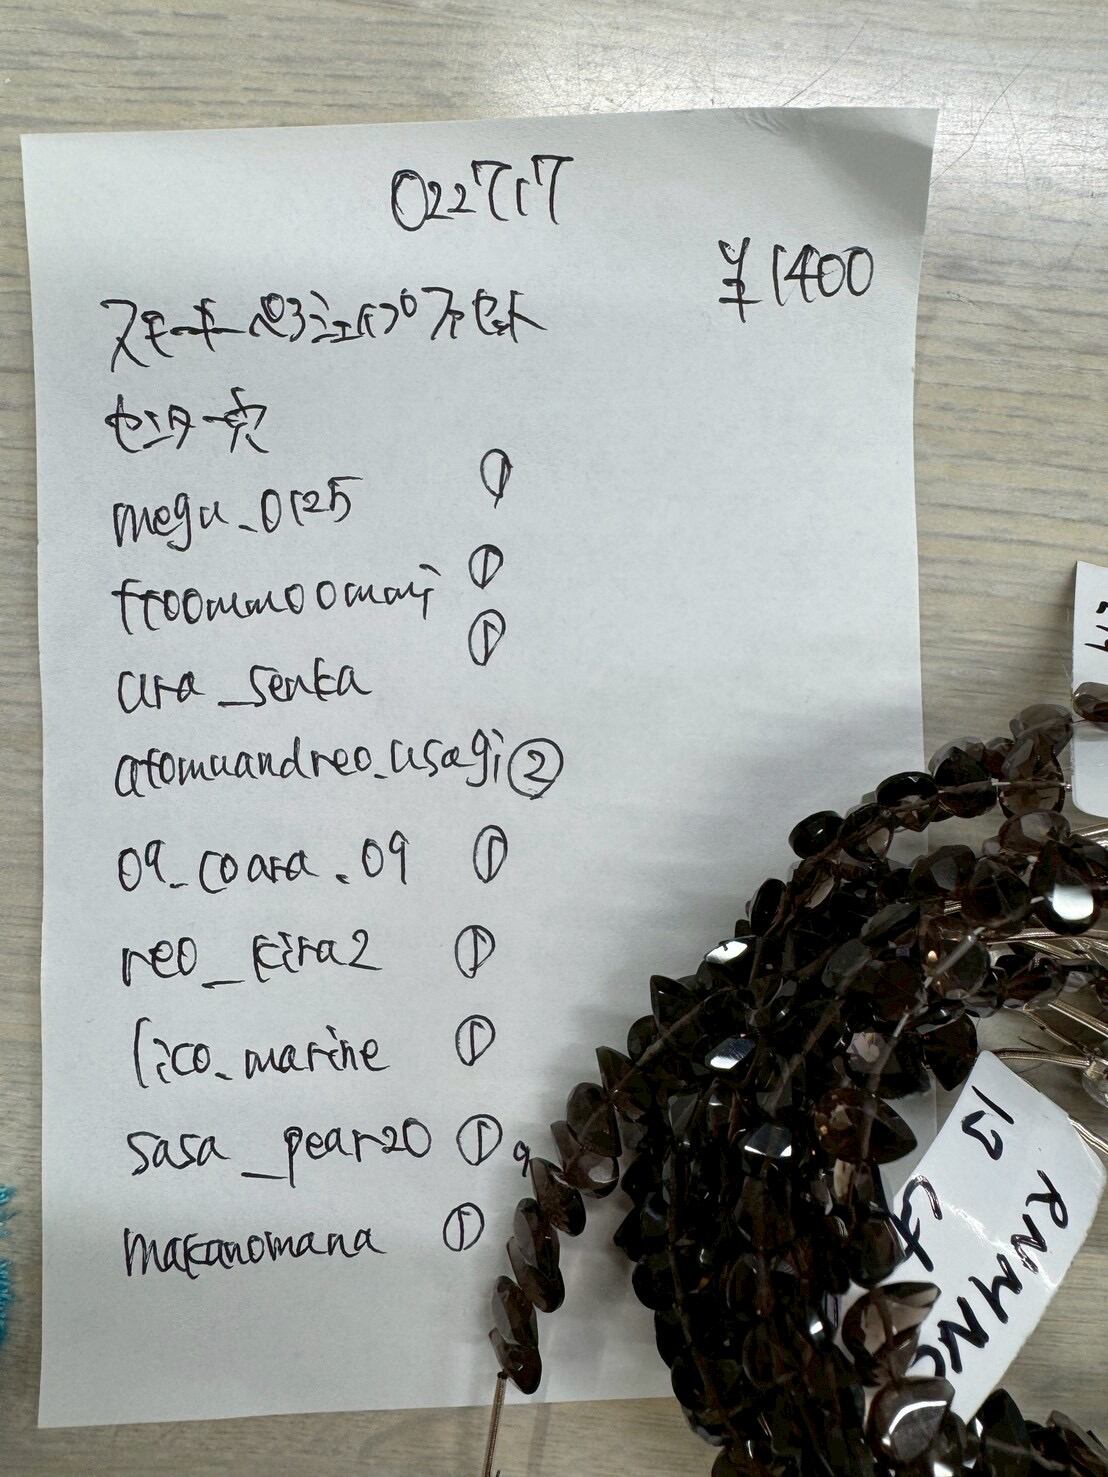 022717
¥1400
スモーキーペアシェイプファセット
センター穴
megu_0125 ①
ttoommoomaj ①
ara_senka ①
atomuandreo_usagi ②
09_coara.09 ①
reo_kira2 ①
lico_marine ①
sasa_pear20 ① 9
makanomana ①
13